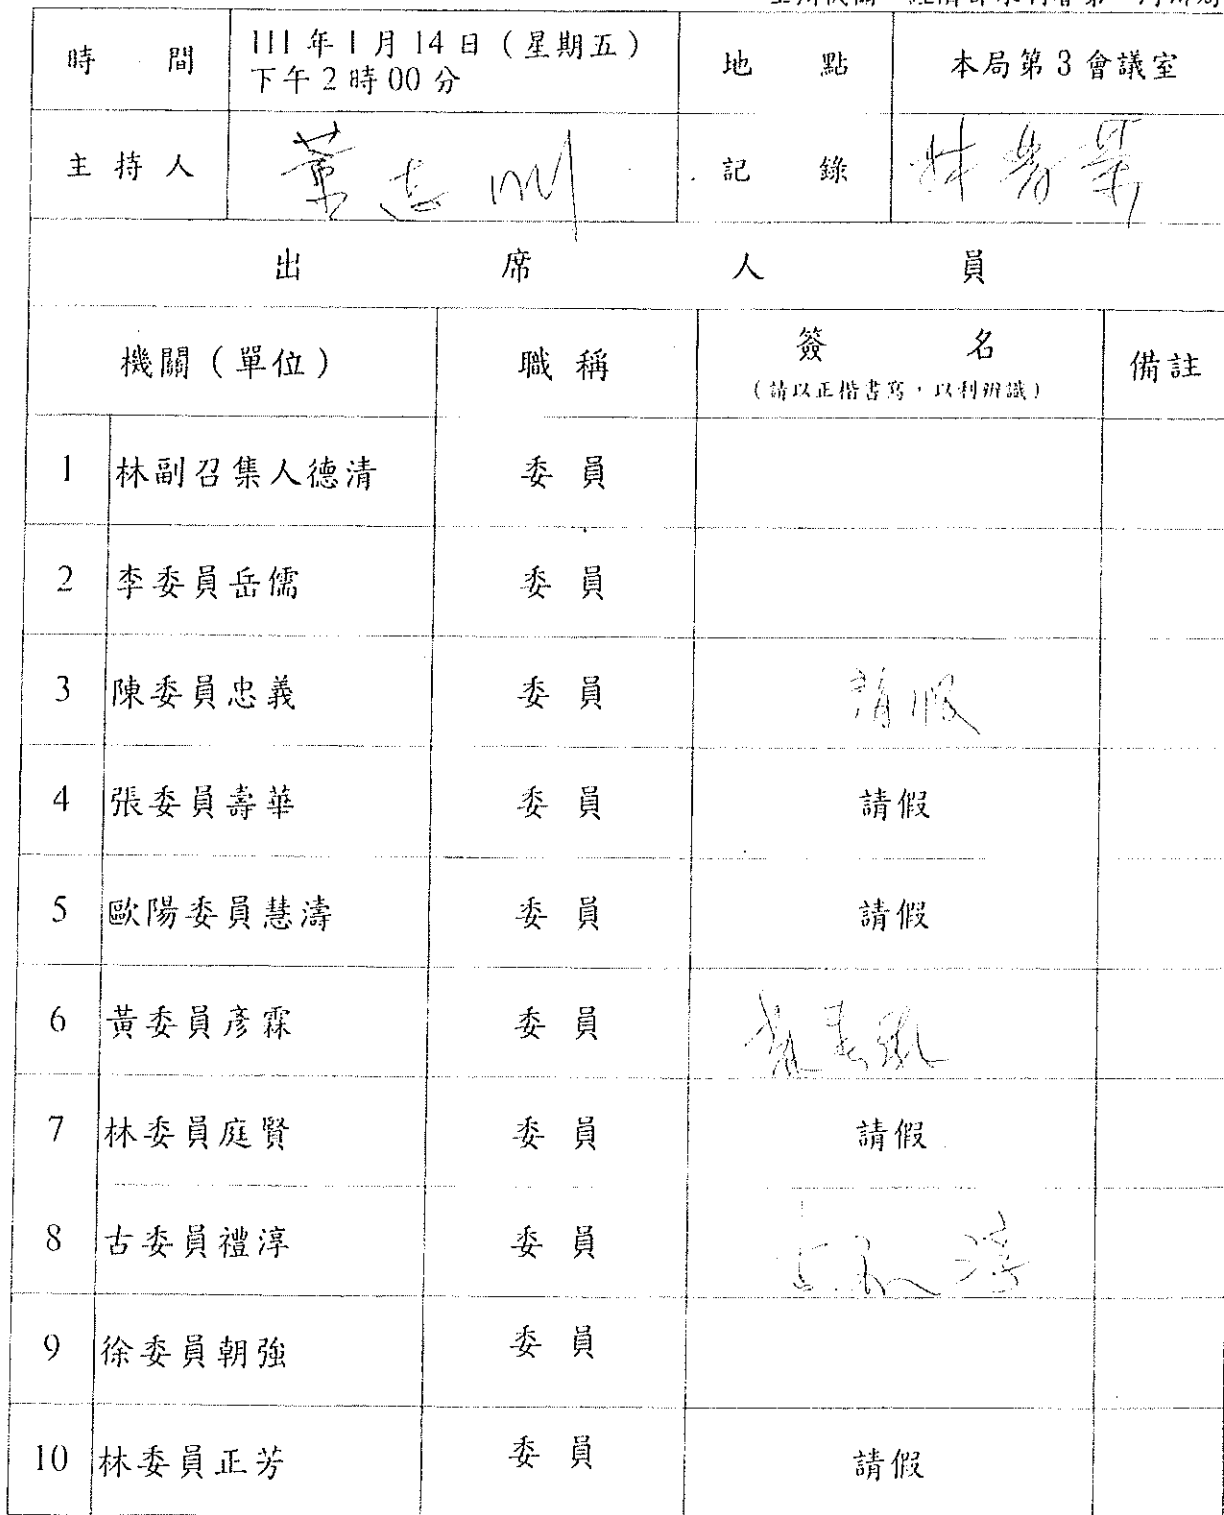 111年1月14日（星期五）
時 間 地 點 本局第3會議室
下午2時00分
主持人 記 錄
出 席 人 員
機關（單位） 職稱 簽 名 備註
（請以正楷書寫，以利辨識）
1 林副召集人德清 委員
2 李委員岳儒 委員
3 陳委員忠義 委員 請假
4 張委員壽華 委員 請假
5 歐陽委員慧濤 委員 請假
6 黃委員彥霖 委員
7 林委員庭賢 委員 請假
8 古委員禮淳 委員 古禮淳
9 徐委員朝強 委員
10 林委員正芳 委員 請假